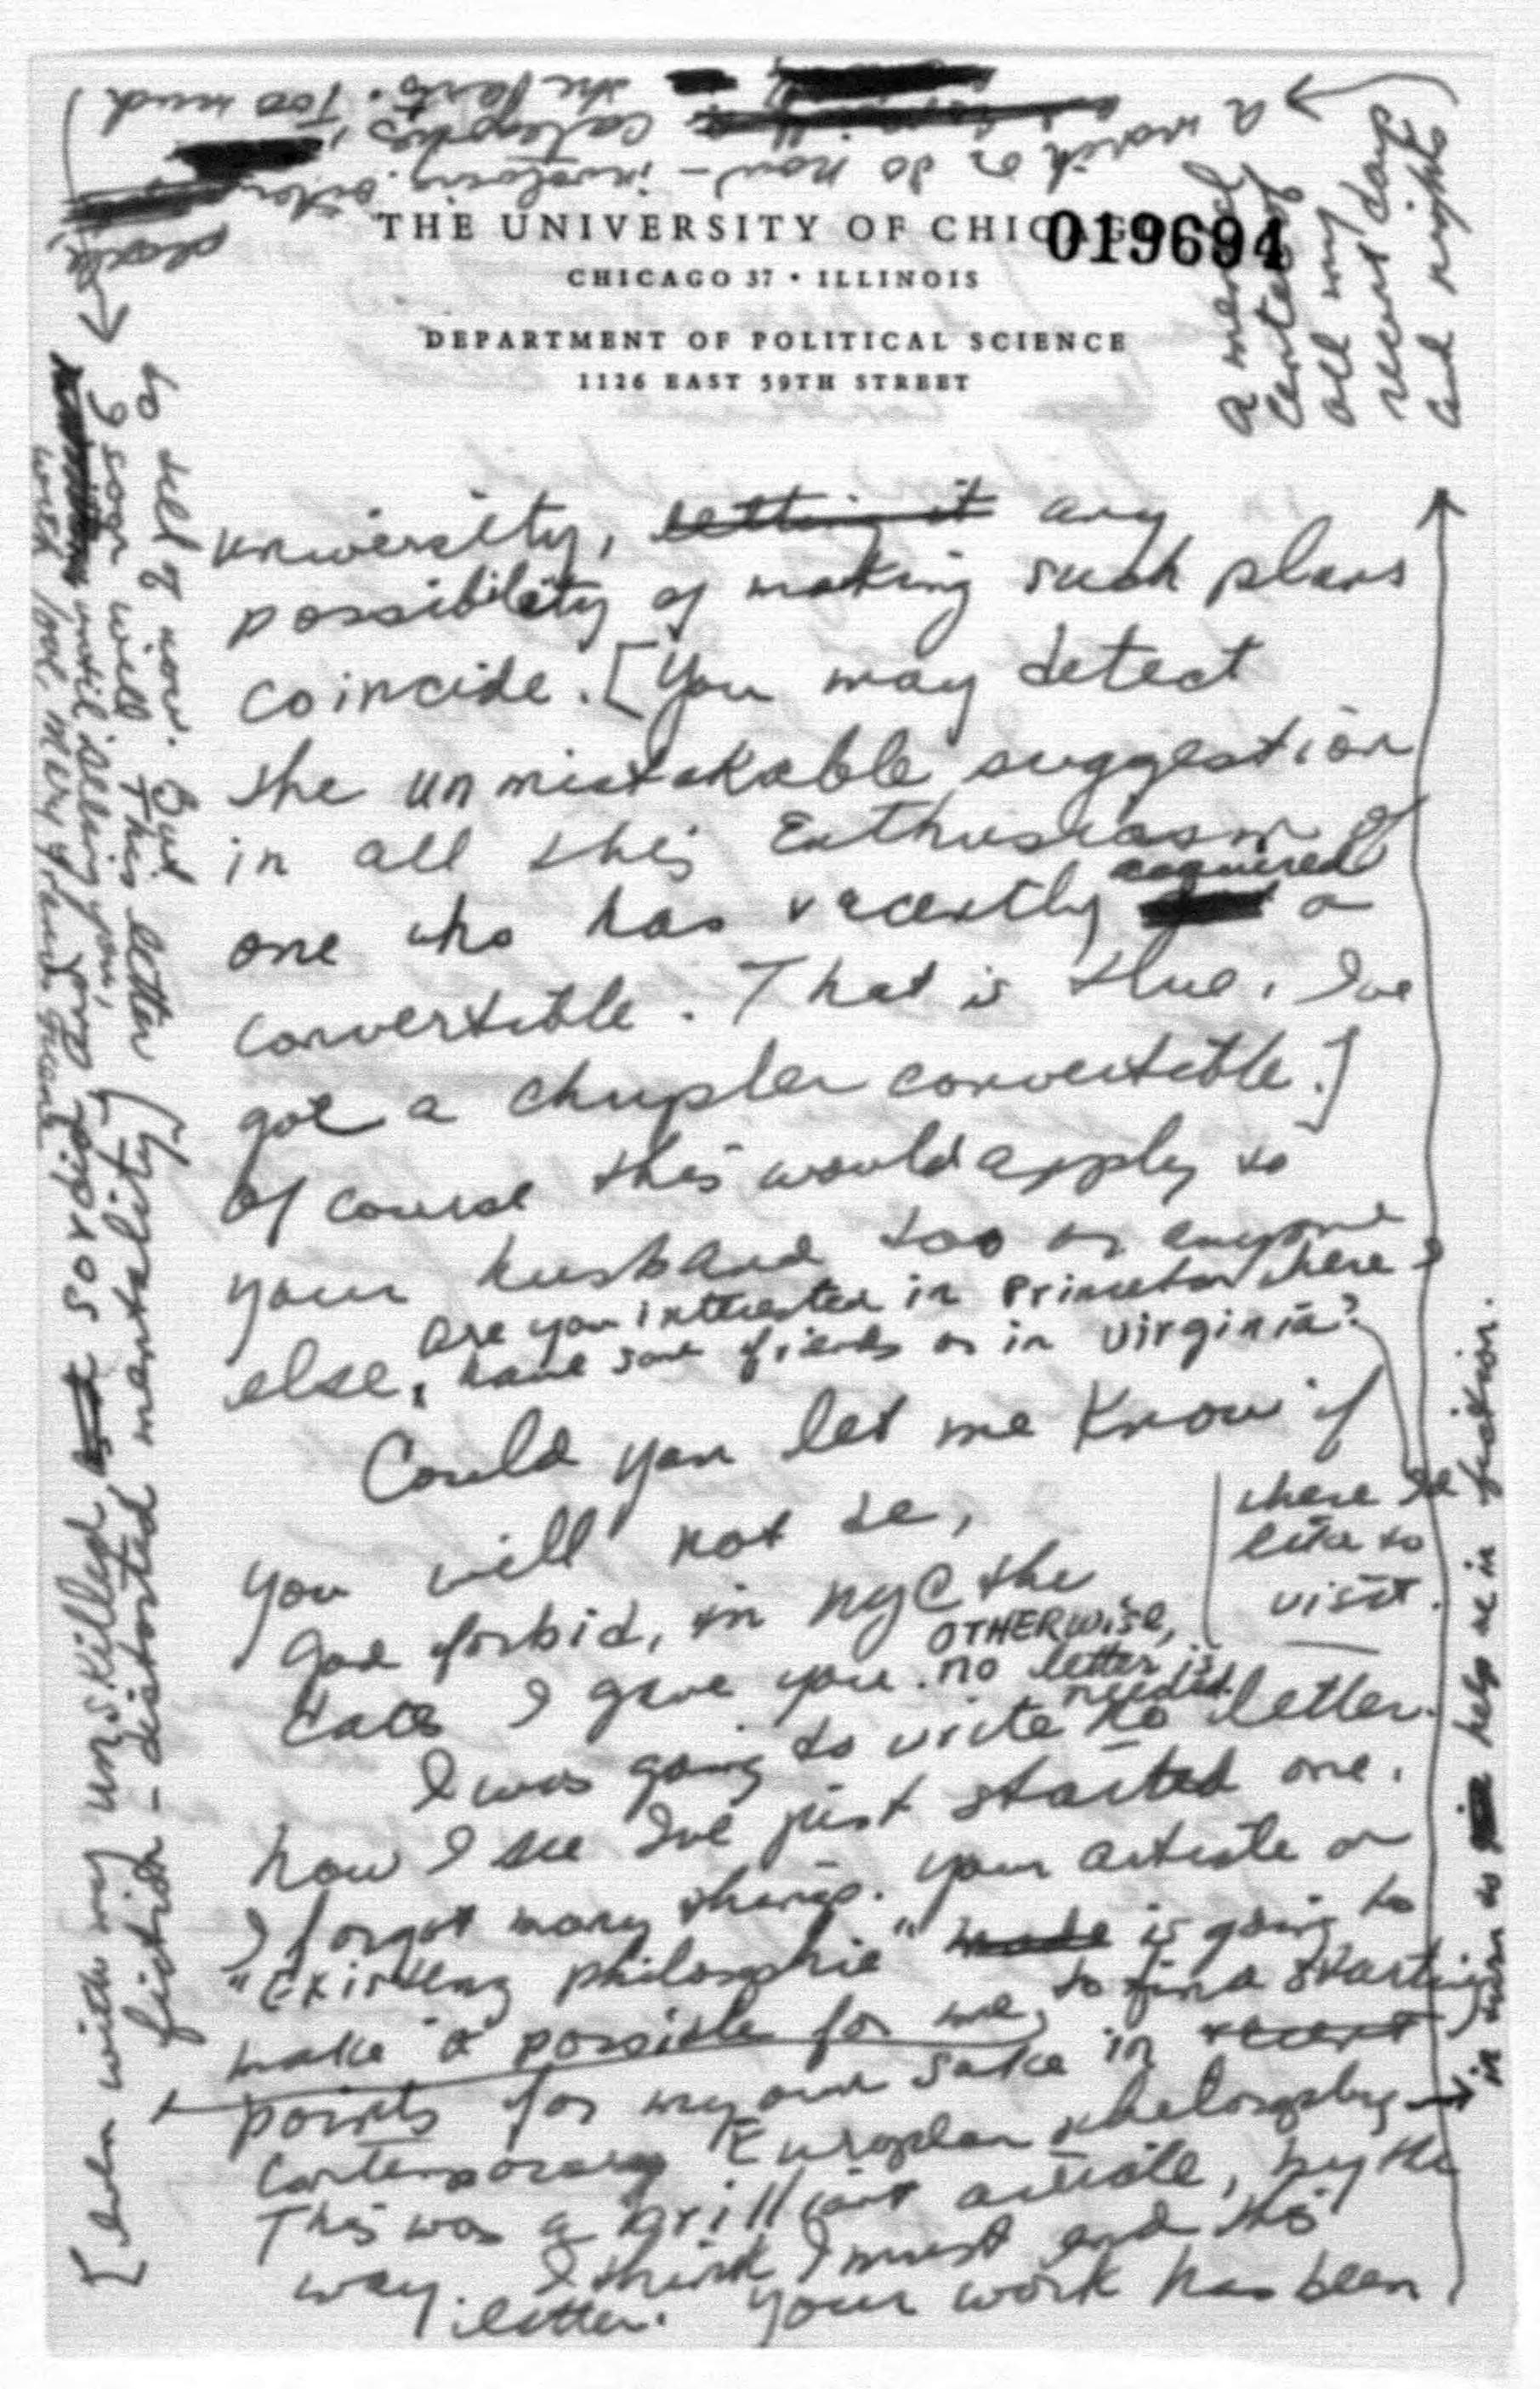 THE UNIVERSITY OF CHICAGO
019694
CHICAGO 37 • ILLINOIS
DEPARTMENT OF POLITICAL SCIENCE
1126 EAST 59TH STREET
university, letting it any
possibility of making such plans
coincide. [You may detect
the unmistakable suggestion
in all this Enthusiasm of
one who has recently acquired a
convertible. That is true, I've
got a chrysler convertible.]
Of course this would apply to
your husband too or anyone
else. Are you interested in Princeton where I
have some friends or in Virginia?
where I'd
like to
visit.
Could you let me know if
you will not be,
God forbid, in NYC the
dates I gave you. OTHERWISE,
no letter is
needed.
I was going to write no letter.
Now I see I've just started one.
I forgot many things. Your article on
"Existenz philosophie" made is going to
make it possible for me, to find starting
points for my own sake in recent
contemporary European philosophy →
This was a brilliant article, by the
way. I think I must end this
letter. Your work has been
in turn to help me in fiction.
a mental
center of
all my
recent days
and nights
a week or so now – involving
the parts. Too much
to tell you now. But
I soon will. This letter
until seeing you,
with love,
[even with my unskilled and sordid
fiction – distorted mentality]